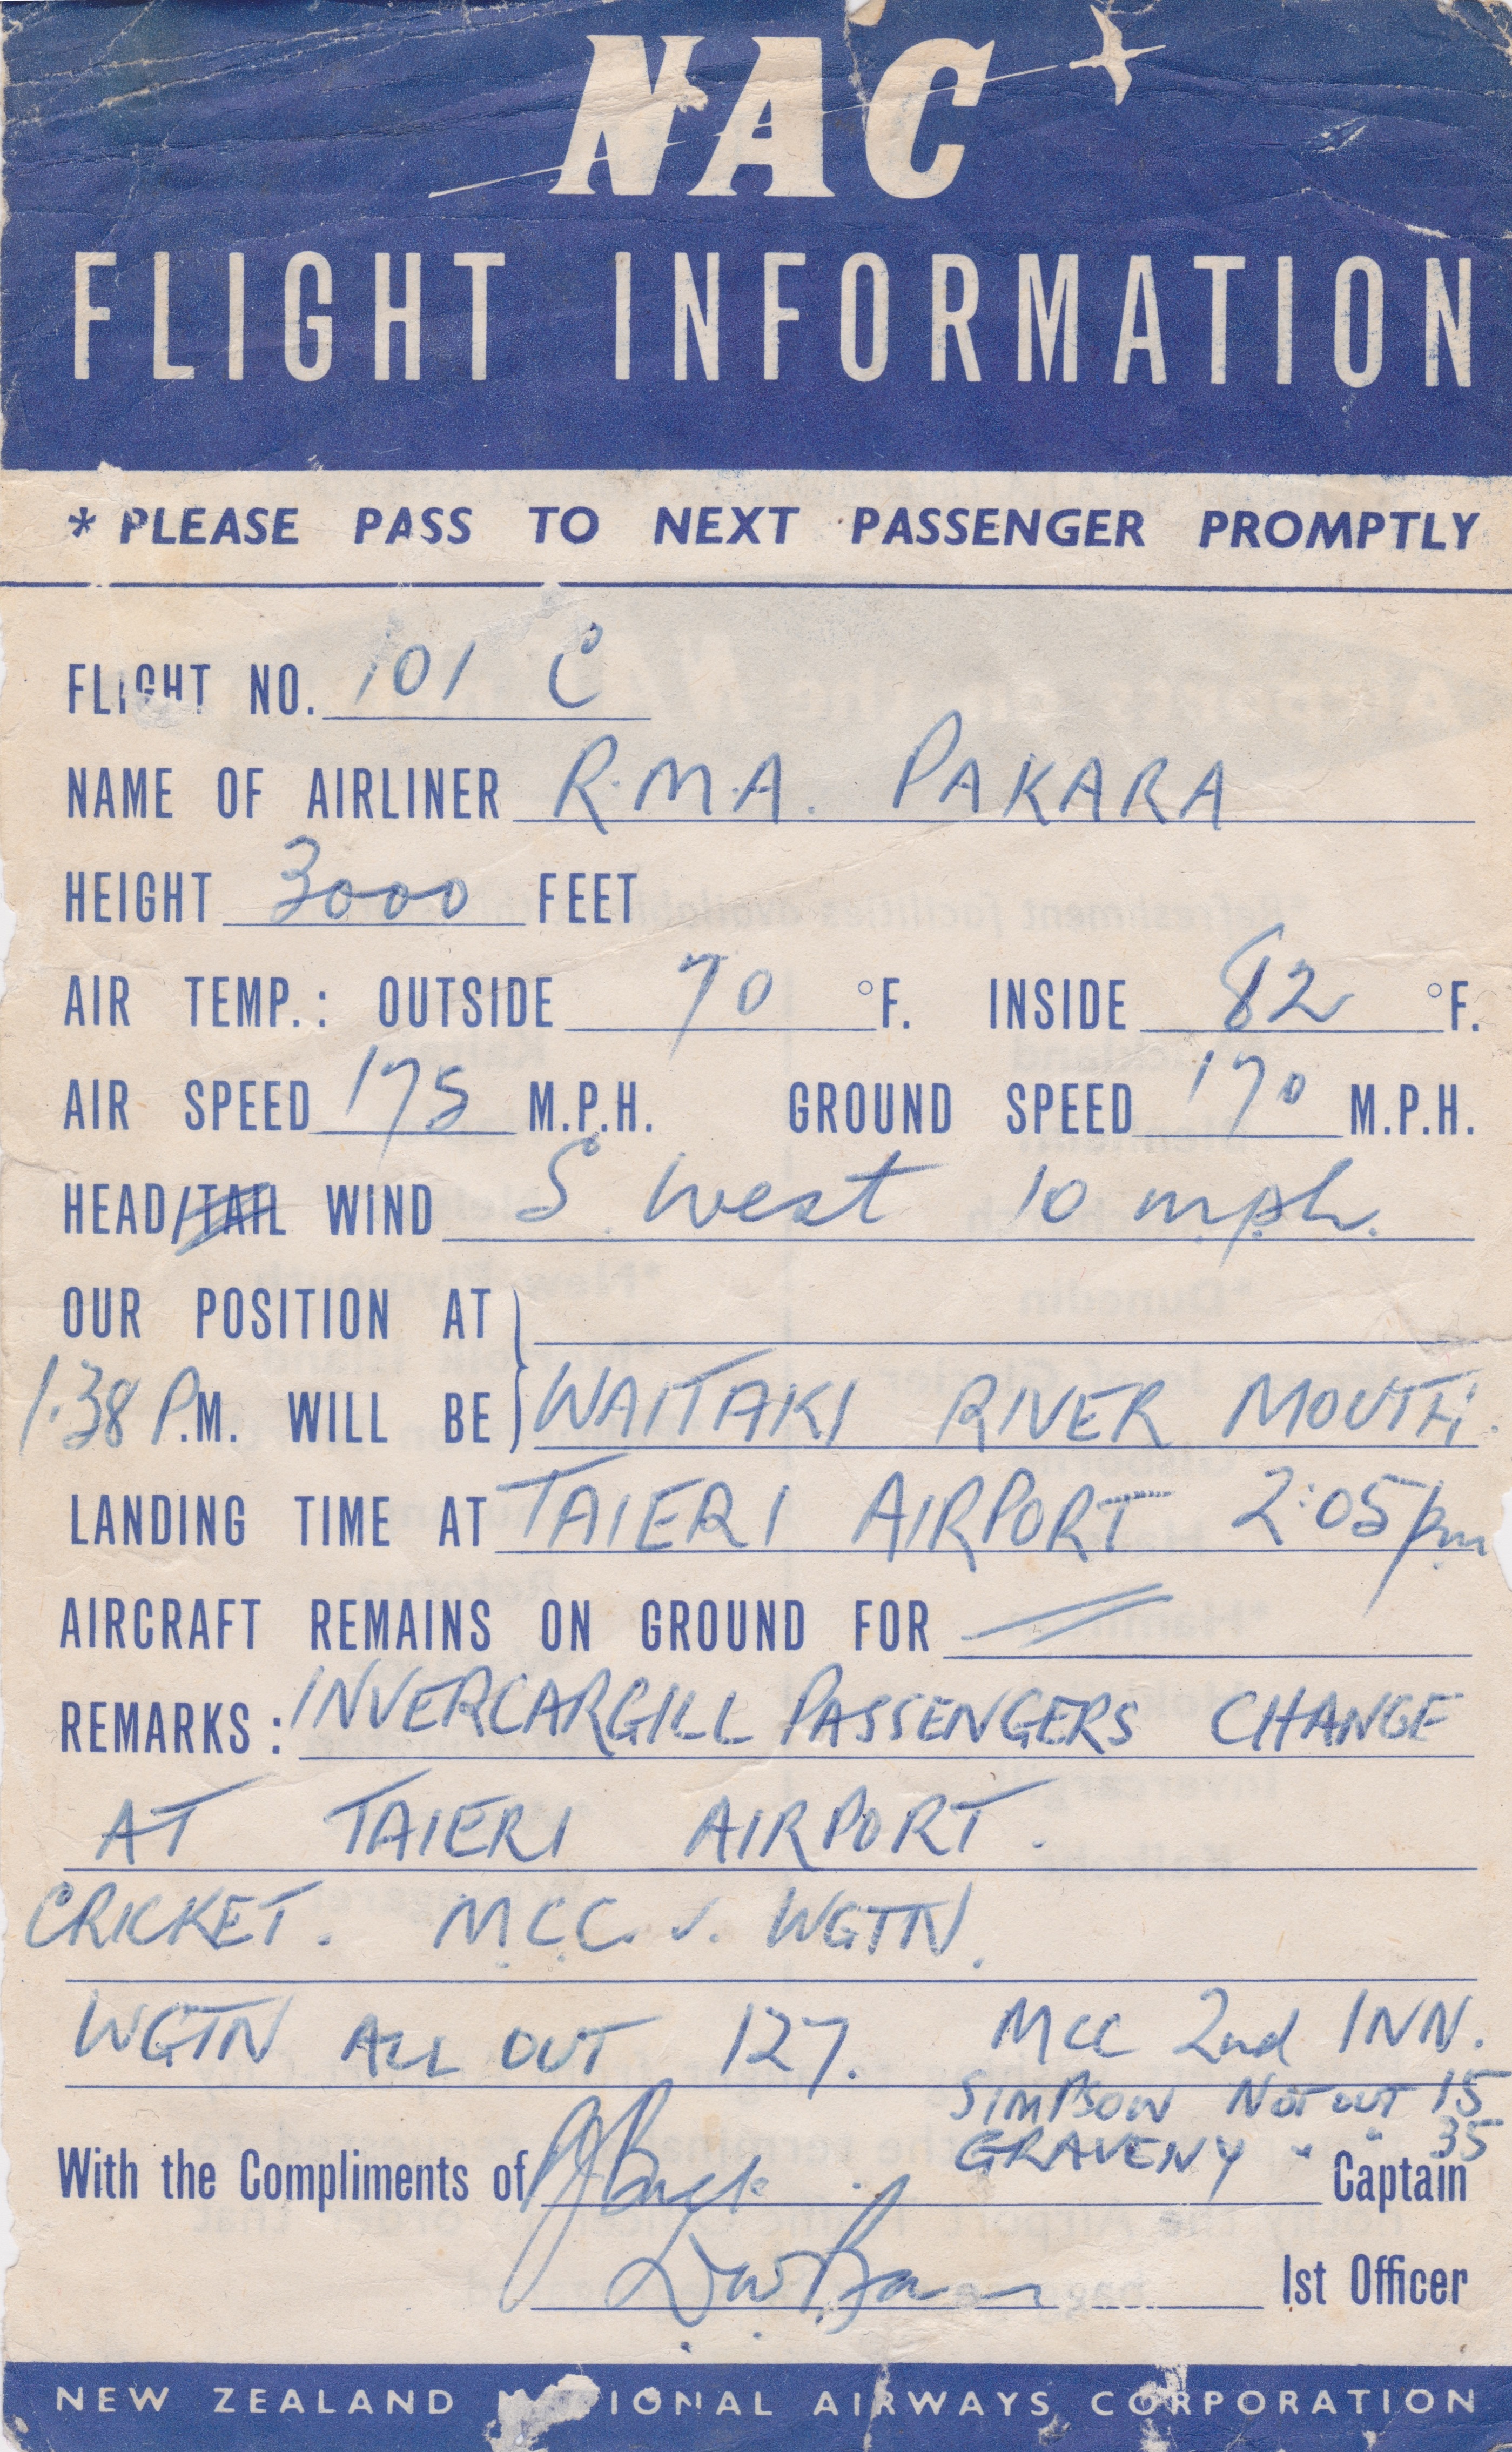 NAC
FLIGHT INFORMATION
* PLEASE PASS TO NEXT PASSENGER PROMPTLY
FLIGHT NO. 101 C
NAME OF AIRLINER R.M.A. PAKARA
HEIGHT 3000 FEET
AIR TEMP.: OUTSIDE 70 °F. INSIDE 82 °F.
AIR SPEED 175 M.P.H. GROUND SPEED 170 M.P.H.
HEAD/TAIL WIND S West 10 mph.
OUR POSITION AT
1.38 P.M. WILL BE WAITAKI RIVER MOUTH.
LANDING TIME AT TAIERI AIRPORT 2:05pm
AIRCRAFT REMAINS ON GROUND FOR
REMARKS: INVERCARGILL PASSENGERS CHANGE
AT TAIERI AIRPORT.
CRICKET. M.C.C. v. WGTN.
WGTN ALL OUT 127. MCC 2nd INN.
SIMPSON NOT OUT 15
GRAVENY " " 35
With the Compliments of Captain
1st Officer
NEW ZEALAND NATIONAL AIRWAYS CORPORATION